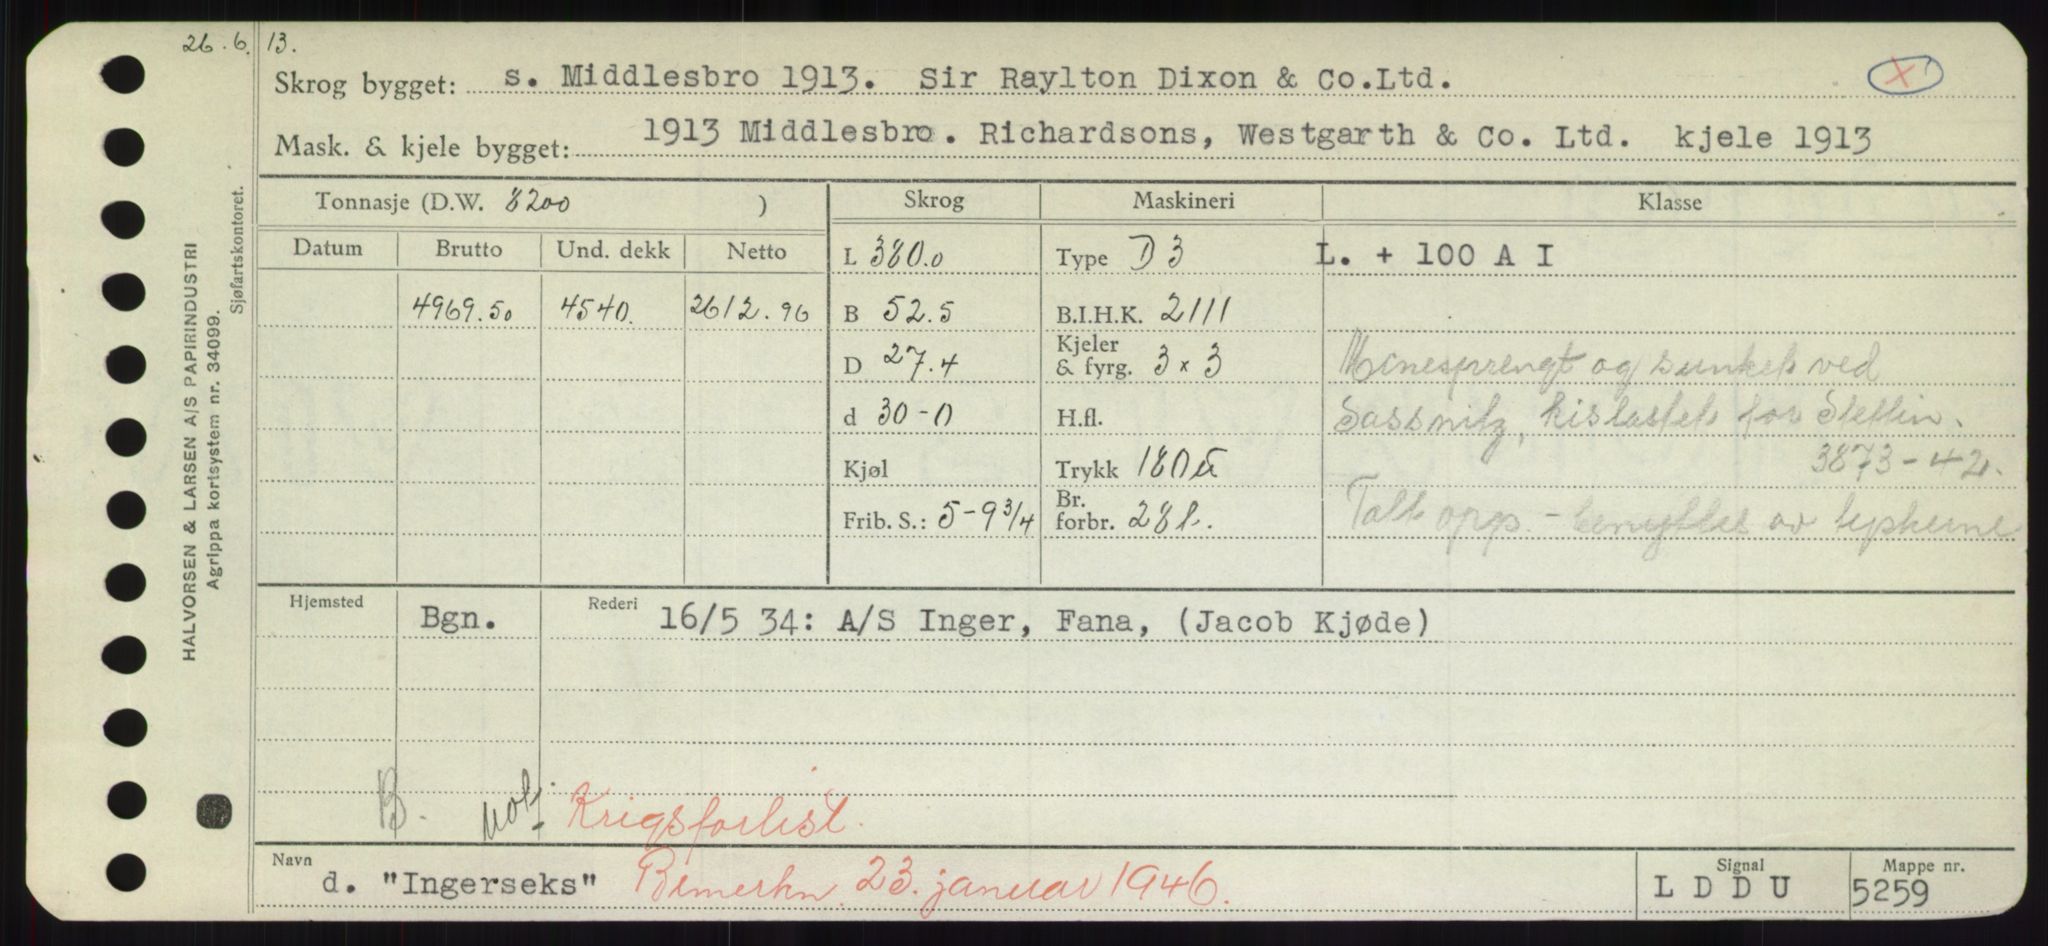 26.6.13.
Skrog bygget: s. Middlesbro 1913. Sir Raylton Dixon & Co.Ltd.
Mask. & kjele bygget: 1913 Middlesbro. Richardsons, Westgarth & Co. Ltd. kjele 1913
Tonnasje (D.W. 8200 ) Skrog Maskineri Klasse
Datum Brutto Und. dekk Netto L 380.0 Type D 3 L. + 100 A I
4969.50 4540. 2612.96 B 52.5 B.I.H.K. 2111
D 27.4 Kjeler & fyrg. 3 x 3 Minesprengt og sunket ved
d 30-0 H.fl. Sassnitz, kislastet for Stettin.
Kjøl Trykk 180 3873-42.
Frib. S.: 5-9 3/4 Br. forbr. 28 t. Tatt opp - benyttet av tyskerne
Hjemsted Bgn. Rederi 16/5 34: A/S Inger, Fana, (Jacob Kjøde)
B. Krigsforlist.
Navn d. "Ingerseks" Bemerkn. 23. januar 1946. Signal L D D U Mappe nr. 5259
HALVORSEN & LARSEN A/S PAPIRINDUSTRI
Agrippa kortsystem nr. 34099.
Sjøfartskontoret.